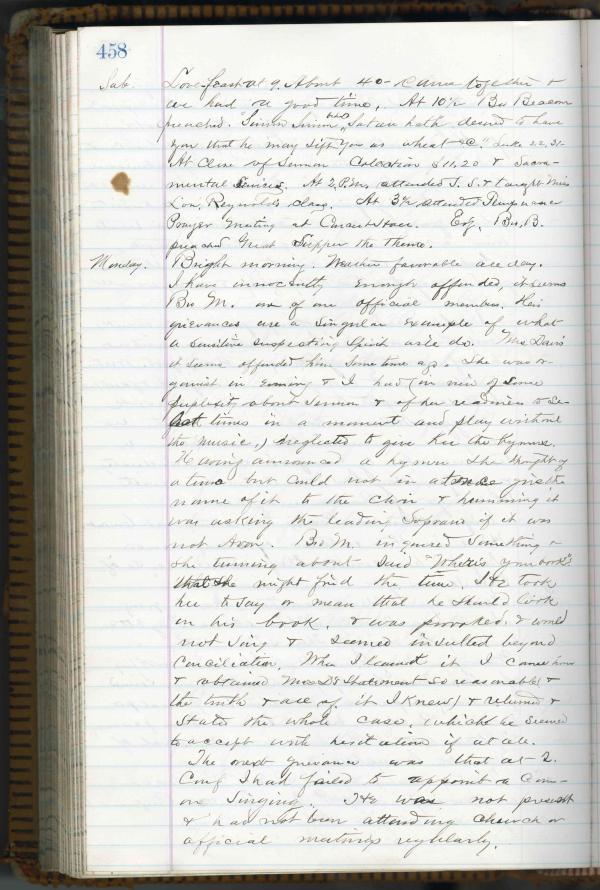 458
Sab. Love feast at 9. About 40 came together &
we had a good time. At 10½ Bro Beacom
preached. "Simon Simon, Satan hath desired to have
you that he may sift you as wheat &c" Luke 22,31.
At Close of Sermon Colection $11,20 & Sacra-
mental Services. At 2,P.M, attended S. S. & taught Miss
Lou, Reynolds class. At 3½ attended Temperance
Prayer Meeting at Court House. Evg, Bro, B.
preached Great Supper the Theme.
Monday. Bright morning. Weather favorable all day.
I have innocently enough offended, it seems
Bro M. one of our official members. His
grievances are a singular example of what
a sensitive suspecting spirit will do. Mrs Davis
it seems offended him some time ago. She was or-
ganist in Evening & I had (in view of some
perplexity about Sermon & of her readiness to se-
lect tunes in a moment and play without
the music,) neglected to give her the hymns.
Having announced a hymn she thought of
a tune but could not in a the
name of it to the choir & humming it
was asking the leading Soprano if it was
not Avon. Bro M. inquired something &
she turning about said "Where's your book"
that she might find the tune. He took
her to say or mean that he should look
in his book. & was provoked; & would
not sing & seemed insulted beyond
Conciliation. When I learned it I came home
& obtained Mrs D's Statement so reasonable &
the truth & all of it I knew) & returned &
stated the whole case, which he seemed
to accept with hesitation if at all.
The next grievance was that at 2.
Conf I had failed to appoint a Com-
on Singing. He was not present
& had not been attending church or
official meetings regularly.